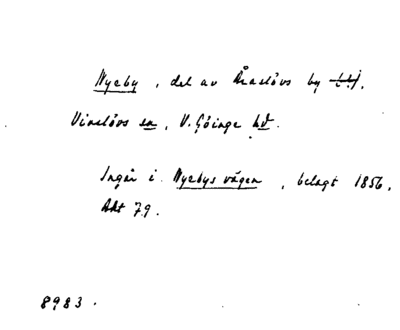 Nyeby, del av Åraslövs by
Vinslövs sn, V. Göinge hd.
Ingår i Nyebys vägen, belagt 1856.
Akt 79.
8983.